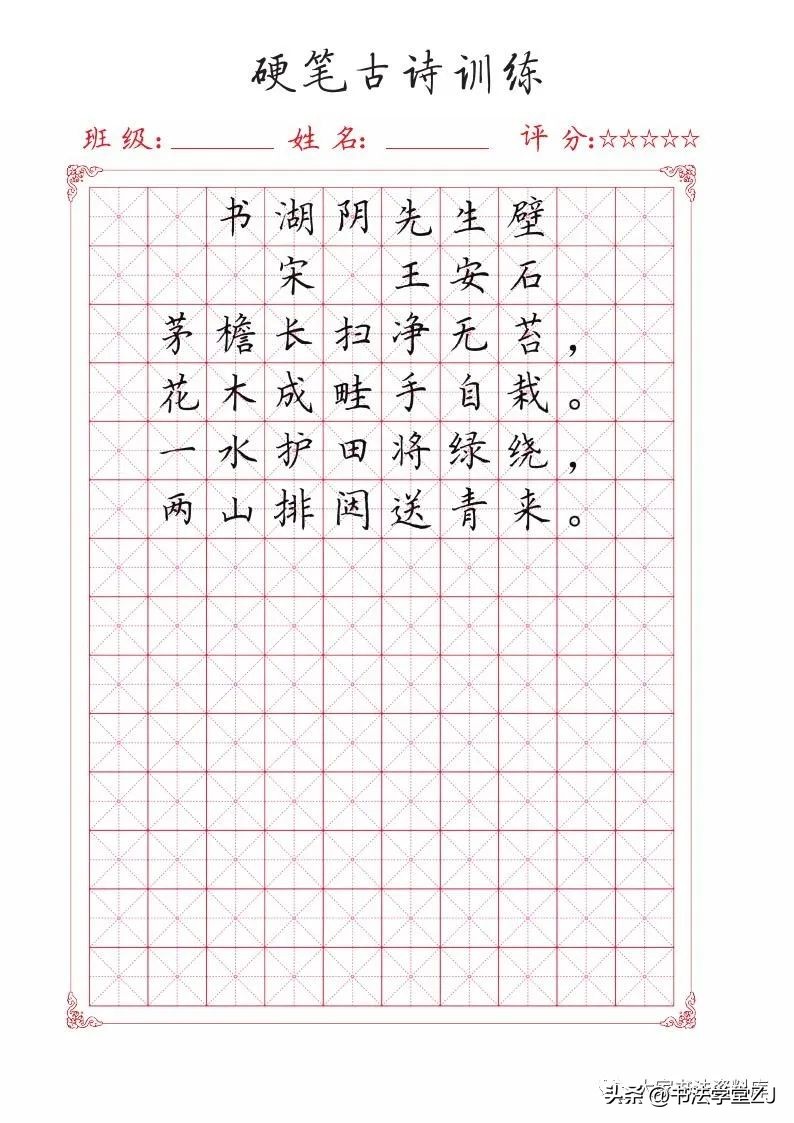 硬笔古诗训练
班级: 姓名: 评分:☆☆☆☆☆
书湖阴先生壁
宋 王安石
茅檐长扫净无苔，
花木成畦手自栽。
一水护田将绿绕，
两山排闼送青来。
头条 @书法学堂ZJ